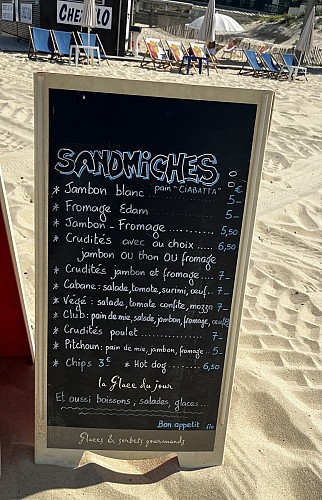 CHEZ
SANDWICHES
* Jambon blanc pain "CiABATTA" 5-
* Fromage Edam 5-
* Jambon - Fromage 5,50
* Crudités avec au choix .... 6,50
jambon OU thon OU fromage
* Crudités jambon et fromage .... 7-
* Cabane : salade, tomate, surimi, oeuf .. 7-
* Végé : salade, tomate confite, mozza 7-
* Club : pain de mie, salade, jambon, fromage, oeuf
* Crudités poulet ............ 7-
* Pitchoun : pain de mie, jambon, fromage .. 5-
* Chips 3€ * Hot dog ........... 6,50
la Glace du jour
Et aussi boissons, salades, glaces...
Bon appetit
Glaces & sorbets gourmands